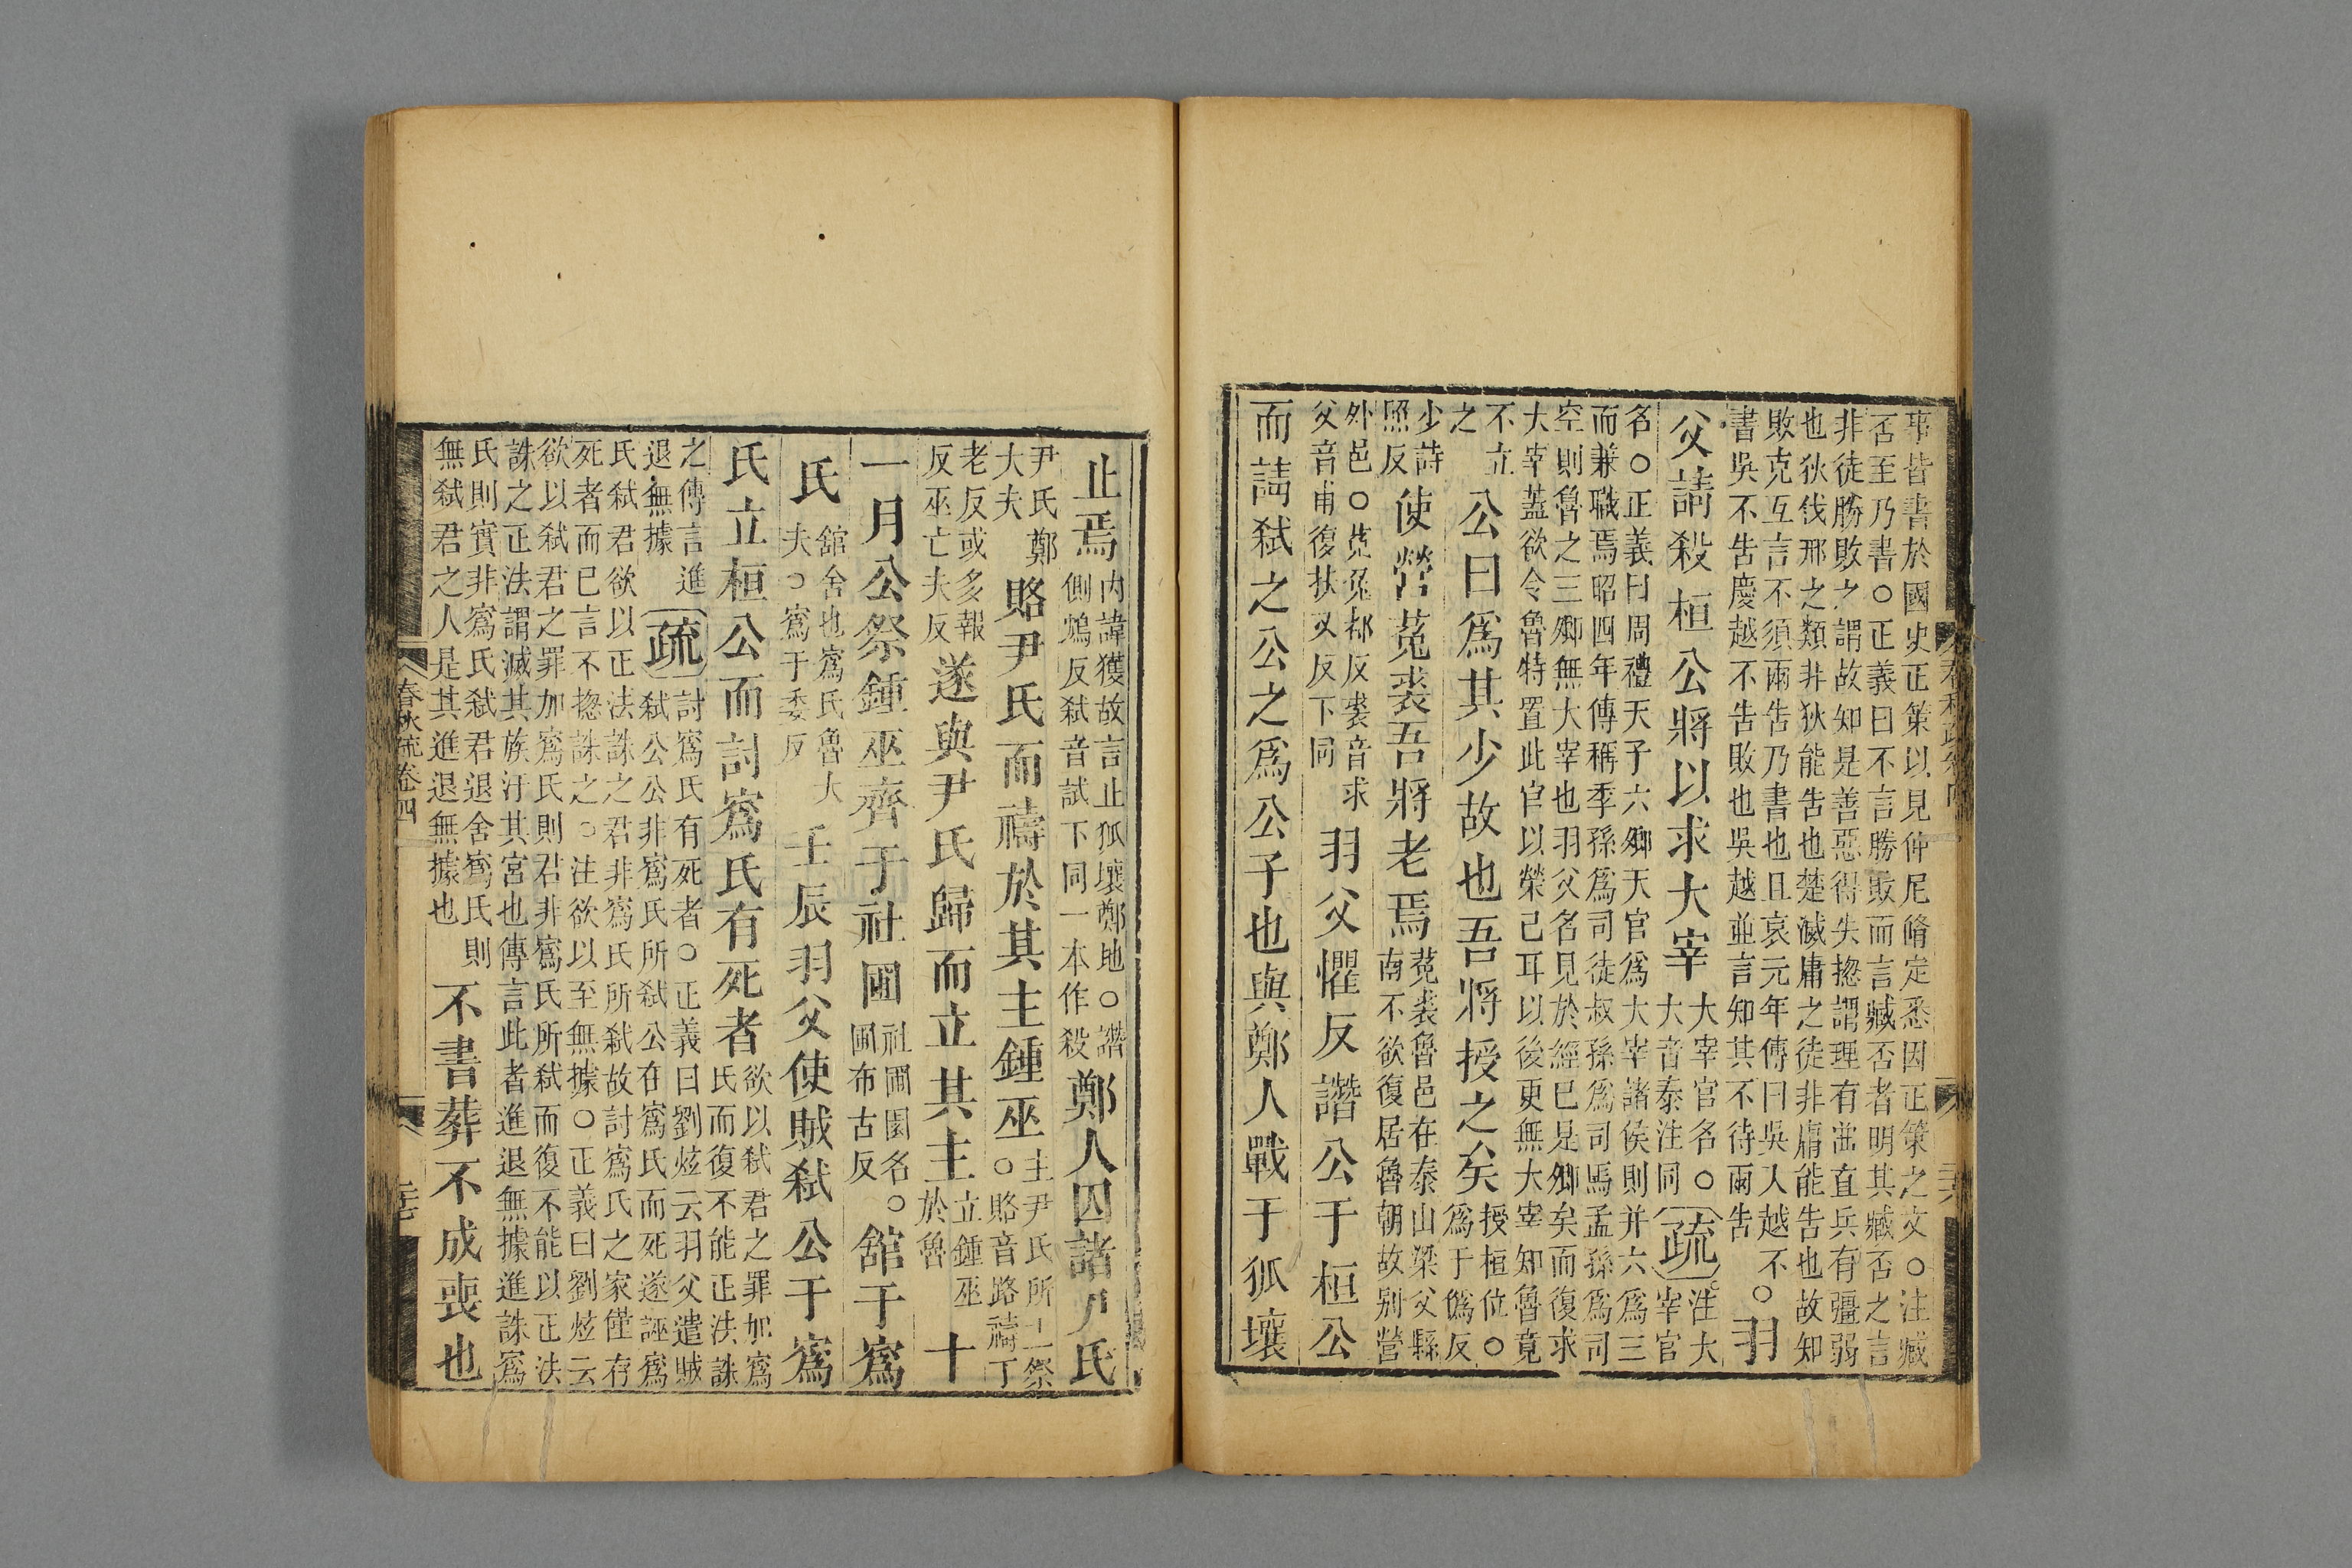 事皆書於國史正策以見仲尼脩定悉因正策之文○注臧
否至乃書○正義曰不言勝敗而言臧否者明其臧否之言
非徒勝敗之謂故知是善惡得失揔謂理有曲直兵有彊弱
也狄伐邢之類非狄能告也楚滅庸之徒非庸能告也故知
敗克互言不須兩告乃書也且哀元年傳曰吳人越不
書吳不告慶越不告敗也吳越並言知其不待兩告
○羽
父請殺桓公將以求大宰
大宰官名○
大音泰注同
疏
注大
宰官
名○正義曰周禮天子六卿天官爲大宰諸侯則并六爲三
而兼職焉昭四年傳稱季孫爲司徒叔孫爲司馬孟孫爲司
空則魯之三卿無大宰也羽父名見於經已是卿矣而復求
大宰蓋欲令魯特置此官以榮己耳以後更無大宰知魯竟
不立
之
公曰爲其少故也吾將授之矣
授桓位○
爲于僞反
少詩
照反
使營菟裘吾將老焉
菟裘魯邑在泰山梁父縣
南不欲復居魯朝故別營
外邑○菟兔都反裘音求
父音甫復扶又反下同
羽父懼反譖公于桓公
而請弒之公之爲公子也與鄭人戰于狐壤
止焉
內諱獲故言止狐壤鄭地○譖
側鴆反弒音試下同一本作殺
鄭人囚諸尹氏
尹氏鄭
大夫
賂尹氏而禱於其主鍾巫
主尹氏所主祭
○賂音路禱丁
老反或多報
反巫亡夫反
遂與尹氏歸而立其主
立鍾巫
於魯
十
一月公祭鍾巫齊于社圃
社圃園名○
圃布古反
舘于寪
氏
舘舍也寪氏魯大
夫○寪于委反
壬辰羽父使賊弒公于寪
氏立桓公而討寪氏有死者
欲以弒君之罪加寪
氏而復不能正法誅
之傳言進
退無據
疏
討寪氏有死者○正義曰劉炫云羽父遣賊
弒公公非寪氏所弒公在寪氏而死遂誣寪
氏弒君欲以正法誅之君非寪氏所弒故討寪氏之家僅存
死者而已言不揔誅之○注欲以至無據○正義曰劉炫云
欲以弒君之罪加寪氏則君非寪氏所弒而復不能以正法
誅之正法謂滅其族汙其宮也傳言此者進退無據進誅寪
氏則實非寪氏弒君退舍寪氏則
無弒君之人是其進退無據也
不書葬不成喪也
春秋疏卷四